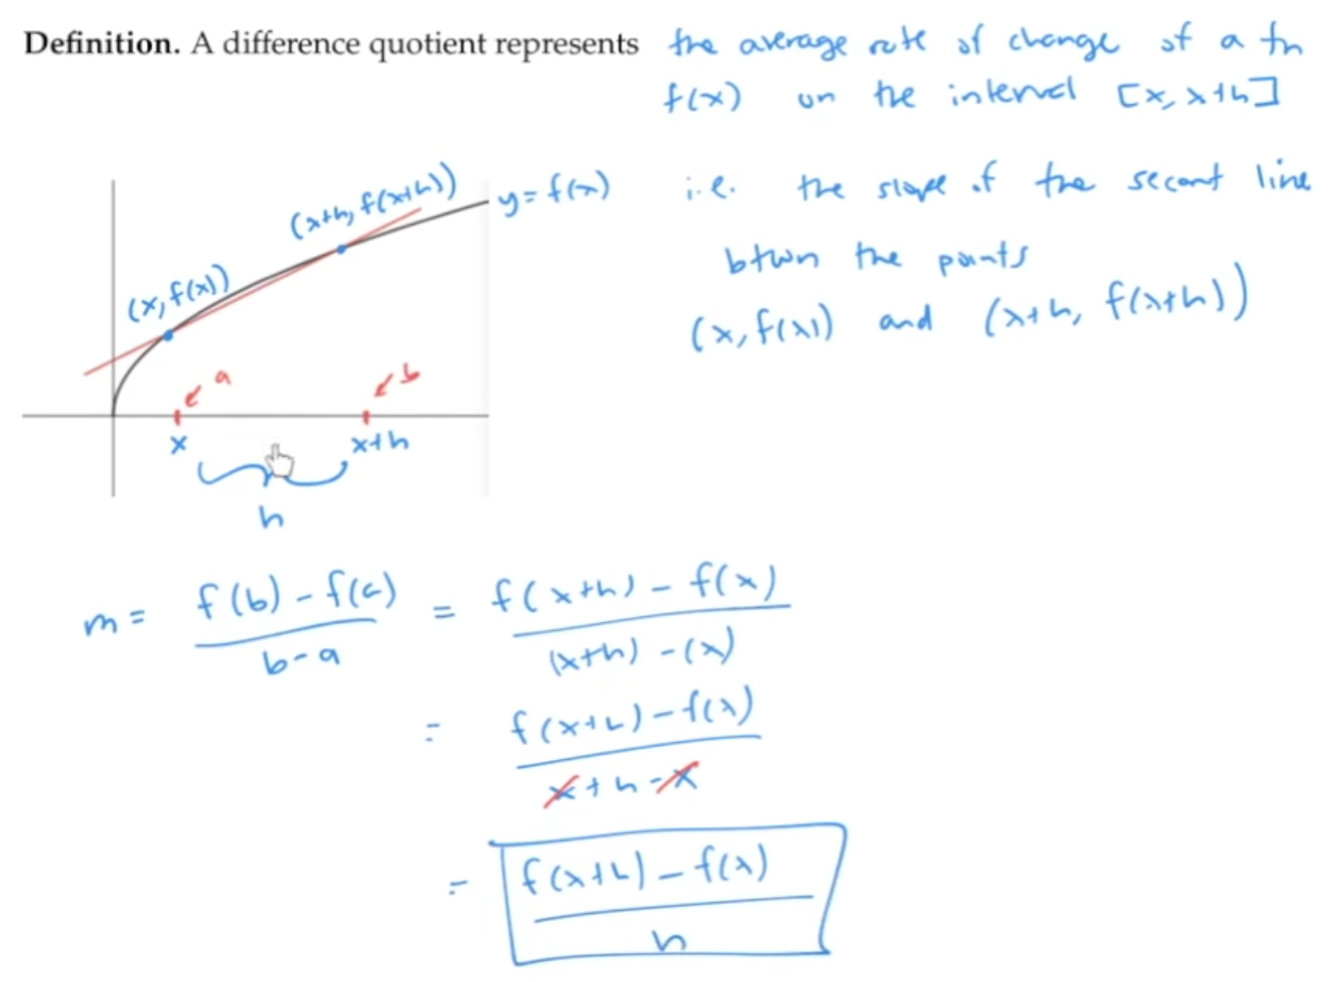 Definition. A difference quotient represents the average rate of change of a fn
f(x) on the interval [x, x+h]
i.e. the slope of the secant line
btwn the points
(x, f(x)) and (x+h, f(x+h))
(x+h, f(x+h))
y = f(x)
(x, f(x))
a
b
x
x+h
h
m = f(b) - f(a) / b - a = f(x+h) - f(x) / (x+h) - (x)
= f(x+h) - f(x) / x + h - x
= f(x+h) - f(x) / h